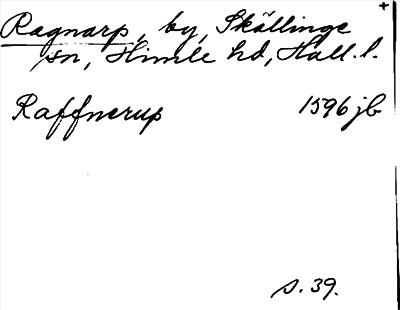 Ragnarp, by, Skällinge
sn, Himle hd, Hall. l.
Raffnerup 1596 jb
s. 39.